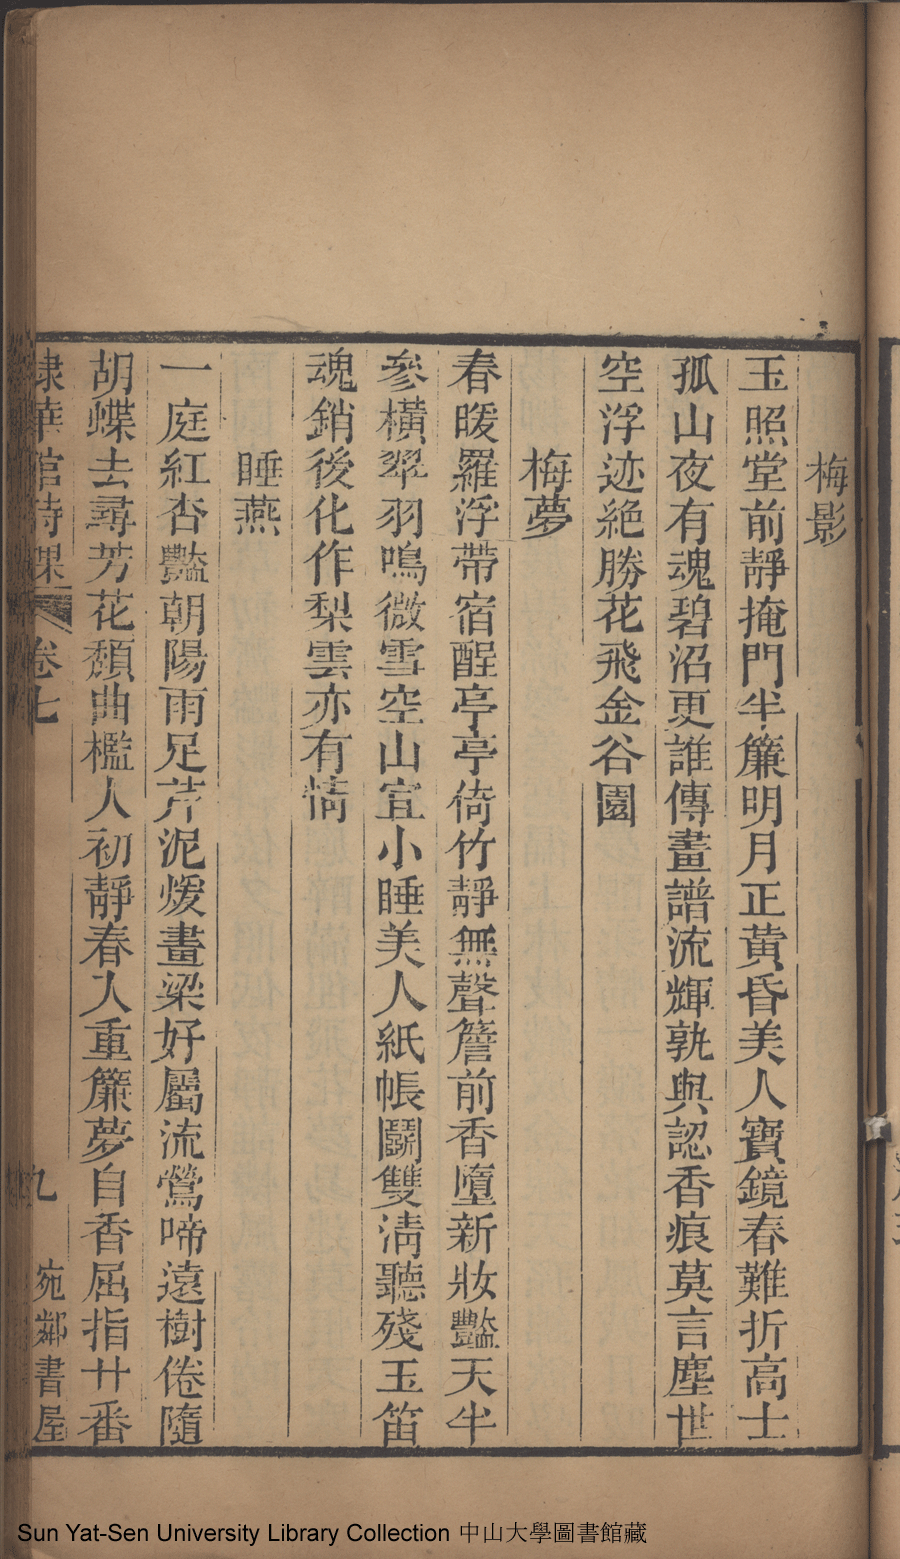 梅影
玉照堂前靜掩門半簾明月正黃昏美人寶鏡春難折高士
孤山夜有魂碧沼更誰傳畫譜流輝孰與認香痕莫言塵世
空浮迹絕勝花飛金谷園
梅夢
春暖羅浮帶宿酲亭亭倚竹靜無聲簷前香墮新妝豔天半
參橫翠羽鳴微雪空山宜小睡美人紙帳鬭雙清聽殘玉笛
魂銷後化作梨雲亦有情
睡燕
一庭紅杏豔朝陽雨足芹泥煖畫梁好屬流鶯啼遠樹倦隨
胡蝶去尋芳花頹曲檻人初靜春入重簾夢自香屈指廿番
棣華館詩課 卷七 九 宛鄰書屋
Sun Yat-Sen University Library Collection 中山大學圖書館藏